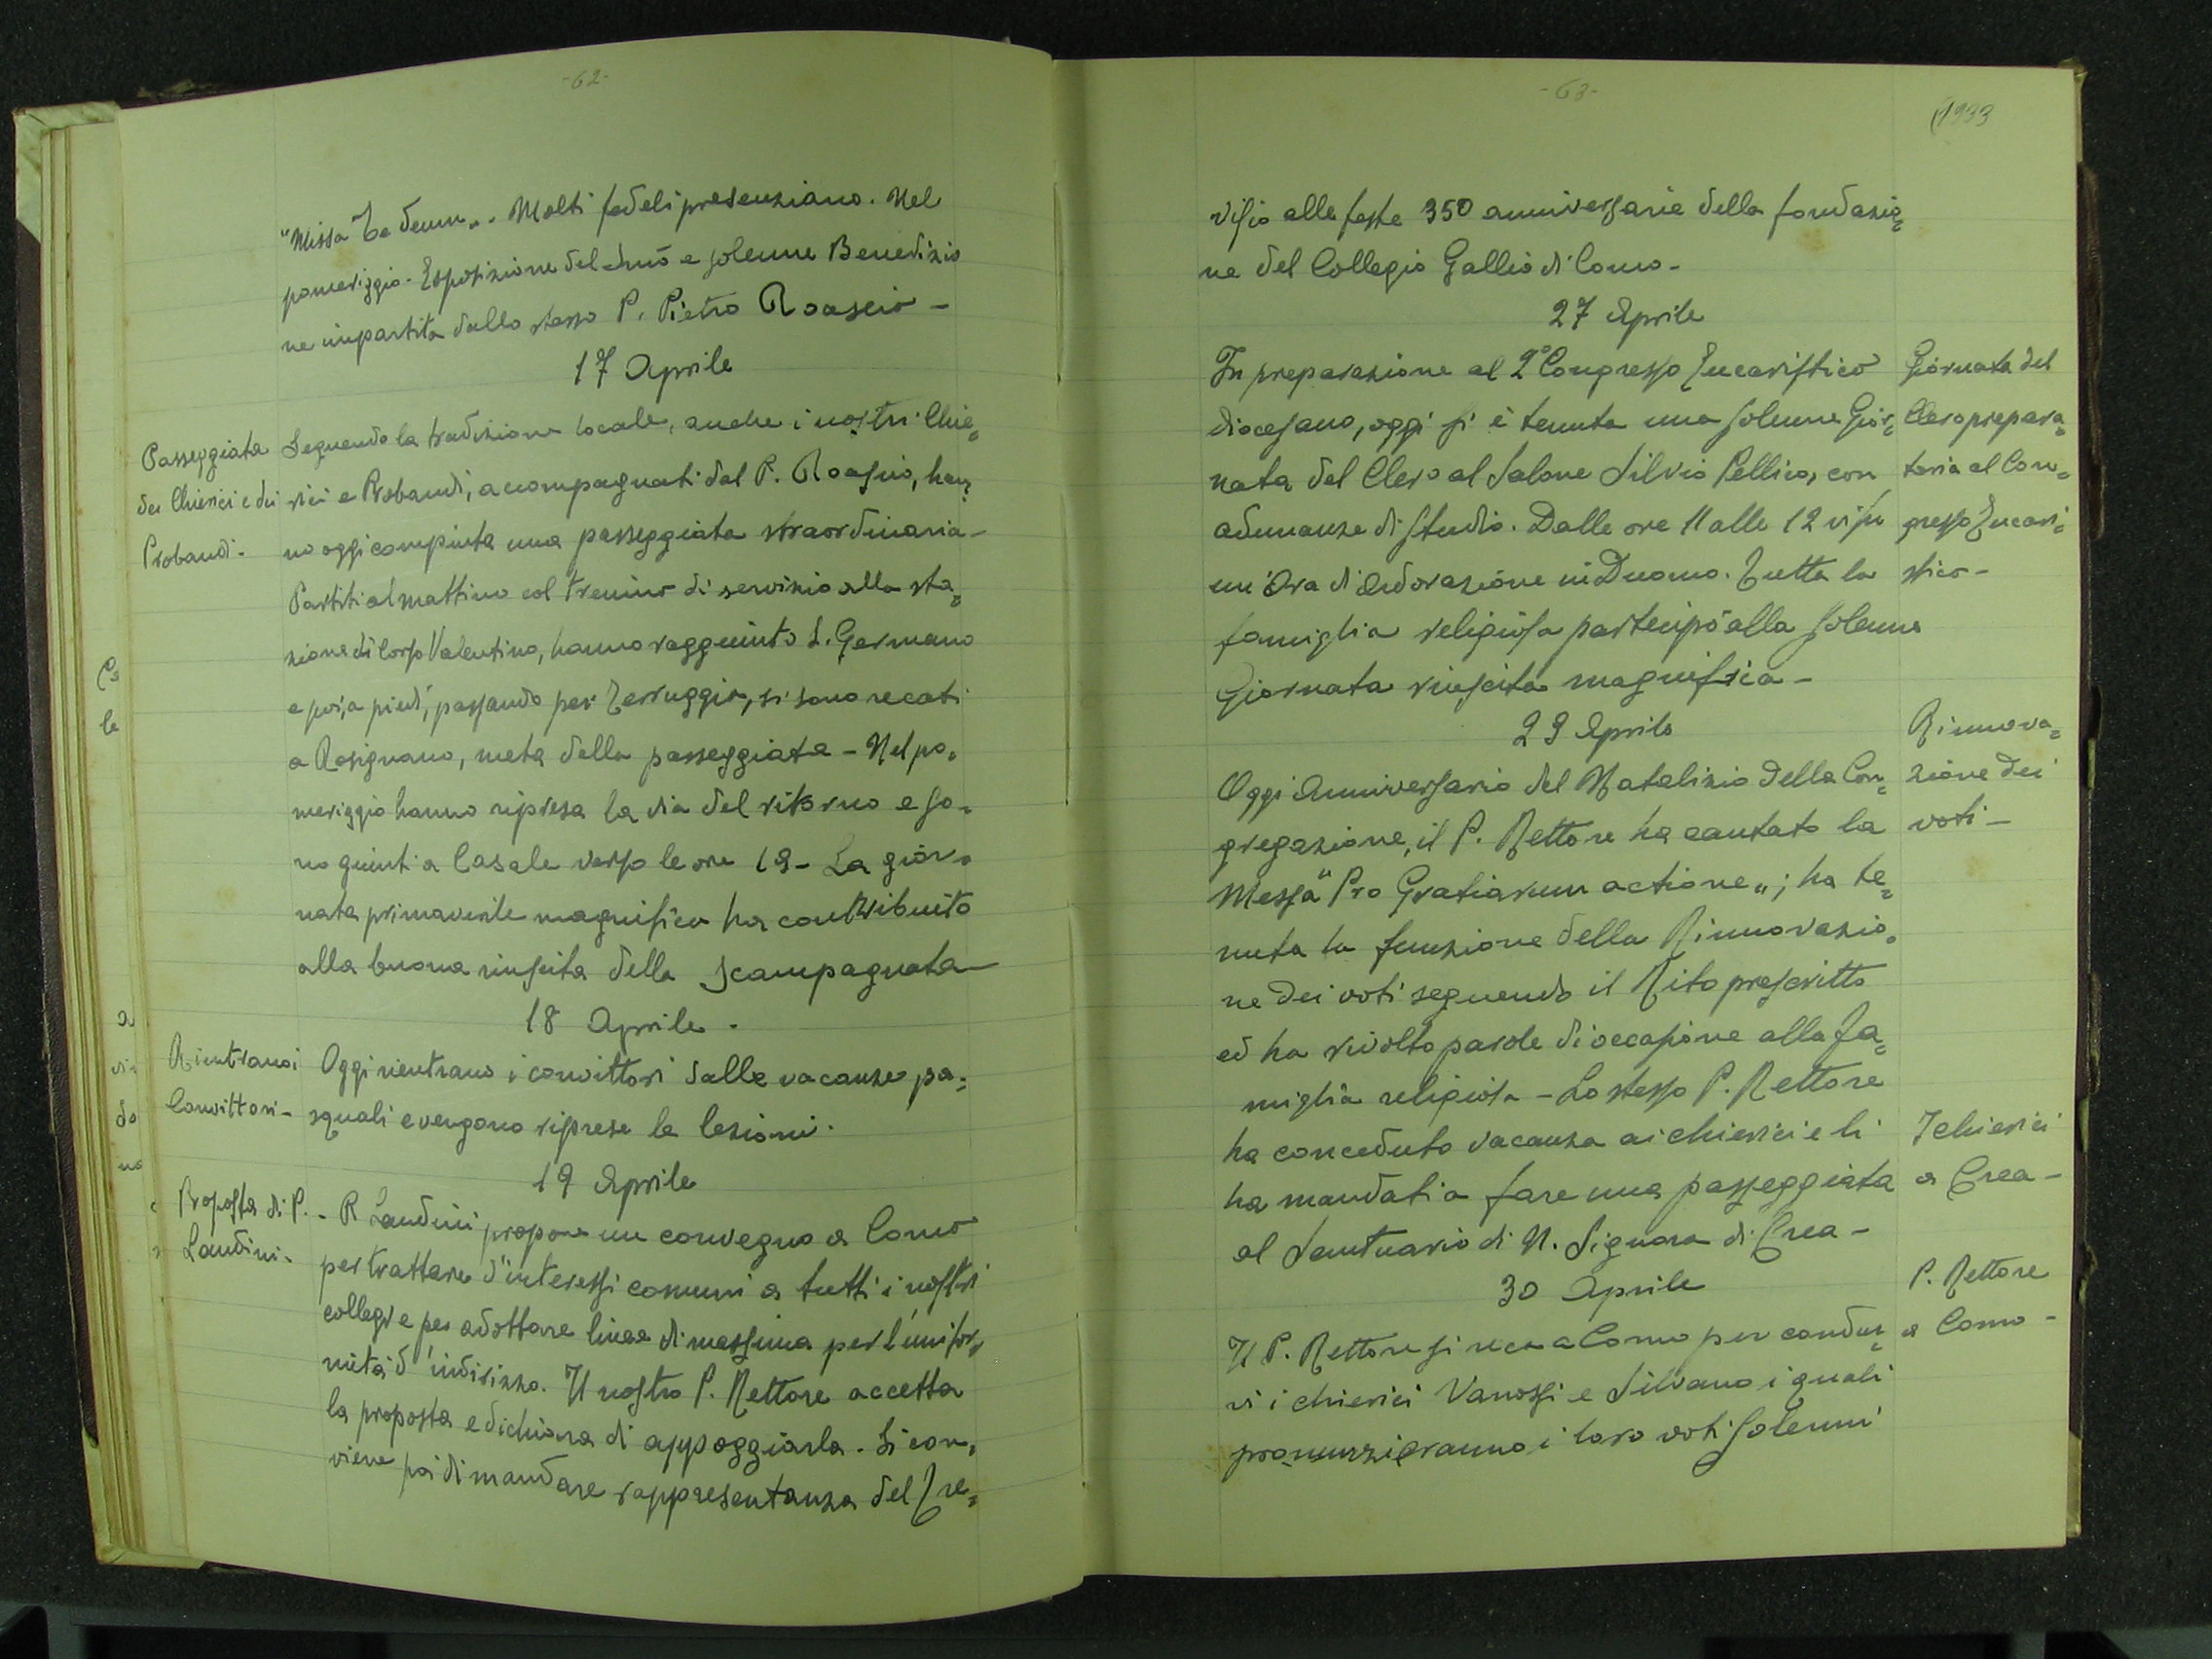 -62-
"Missa Te Deum„. Molti fedeli presenziano. Nel
pomeriggio. Esposizione del Smo e solenne Benedizio
ne impartita dallo stesso P. Pietro Roascio -
17 Aprile
Passeggiata
dei Chierici e dei
Probandi.
Seguendo la tradizione locale, anche i nostri Chie=
rici e Probandi, accompagnati dal P. Roascio, han=
no oggi compiuta una passeggiata straordinaria -
Partiti al mattino col trenino di servizio alla sta=
zione di Corso Valentino, hanno raggiunto S. Germano
e poi, a piedi, passando per Terruggia, si sono recati
a Rosignano, meta della passeggiata - Nel po=
meriggio hanno ripresa la via del ritorno e so=
no giunti a Casale verso le ore 19 - La gior=
nata primaverile magnifica ha contribuito
alla buona riuscita della scampagnata -
18 Aprile.
Rientrano i
Convittori -
Oggi rientrano i convittori dalle vacanze pa=
squali e vengono riprese le lezioni.
19 Aprile
Proposta di P.
Landini.
- P. Landini propone un convegno a Como
per trattare d'interessi comuni a tutti i nostri
collegi e per adottare linee di massima per l'unifor=
mità d'indirizzo. Il nostro P. Rettore accetta
la proposta e dichiara di appoggiarla. Si con=
viene poi di mandare rappresentanza del Tre=
-63-
(1933
visio alle feste 350 anniversarie della fondazio=
ne del Collegio Gallio di Como -
27 Aprile
In preparazione al 2° Congresso Eucaristico
diocesano, oggi si è tenuta una solenne Gior=
nata del Clero al Salone Silvio Pellico, con
adunanze di studio. Dalle ore 11 alle 12 vi fu
un'Ora di Adorazione in Duomo. Tutta la
famiglia religiosa partecipò alla solenne
Giornata riuscita magnifica -
Giornata del
Clero prepara=
toria al Con=
gresso Eucari=
stico -
29 Aprile
Oggi Anniversario del Natalizio della Con=
gregazione, il P. Rettore ha cantato la
Messa "Pro Gratiarum actione„; ha te=
nuta la funzione della Rinnovazio=
ne dei voti seguendo il Rito prescritto
ed ha rivolto parole di occasione alla fa=
miglia religiosa - Lo stesso P. Rettore
ha conceduto vacanza ai chierici e li
ha mandati a fare una passeggiata
al Santuario di N. Signora di Crea -
Rinnova=
zione dei
voti -
I chierici
a Crea -
30 Aprile
Il P. Rettore si reca a Como per condur=
vi i chierici Vanossi e Silvano i quali
pronunzieranno i loro voti solenni
P. Rettore
a Como -